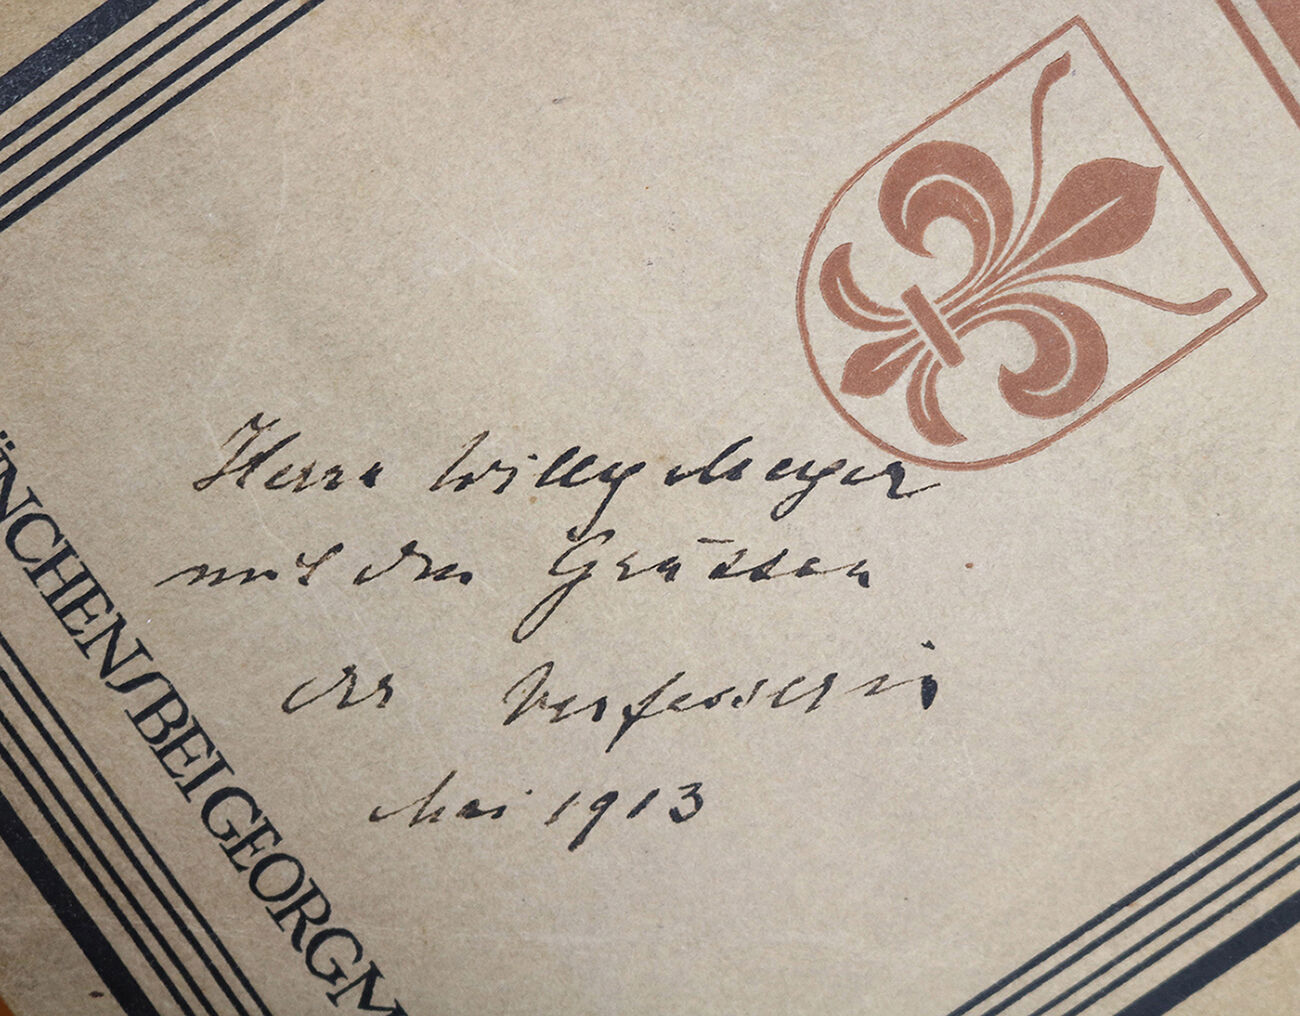 Herrn Willy Meyer
mit den Grüssen
der Verfasserin
Mai 1913
ÜNCHENSBEIGEORGM